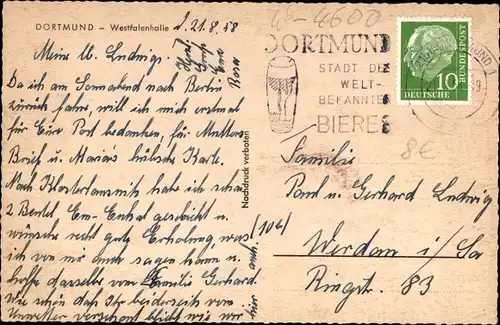 DORTMUND – Westfalenhalle
21.8.58
Meine lb. Ludwigs!
Da ich am Sonnabend nach Berlin
zurück fahre, will ich mich erstmal
für Eure Post bedanken, für Mutters
Brief u. Marias hübsche Karte.
Nach habe ich schon
2 Beutel geschickt u.
wünsche recht gute Erholung, was
ich von mir auch sagen kann u.
hoffe dasselbe von Emilie Gerhard.
Wie schön das Ihr beiderseits vom
Unwetter verschont bleibt wie wir
hier auch.
Rosa
Nachdruck verboten
4600
DORTMUND
STADT DER
WELT-
BEKANNTEN
BIERES
DEUTSCHE
BUNDESPOST
10
8€
Familie
Paul u. Gerhard Ludwig
Werdau i/Sa
Ringstr. 83